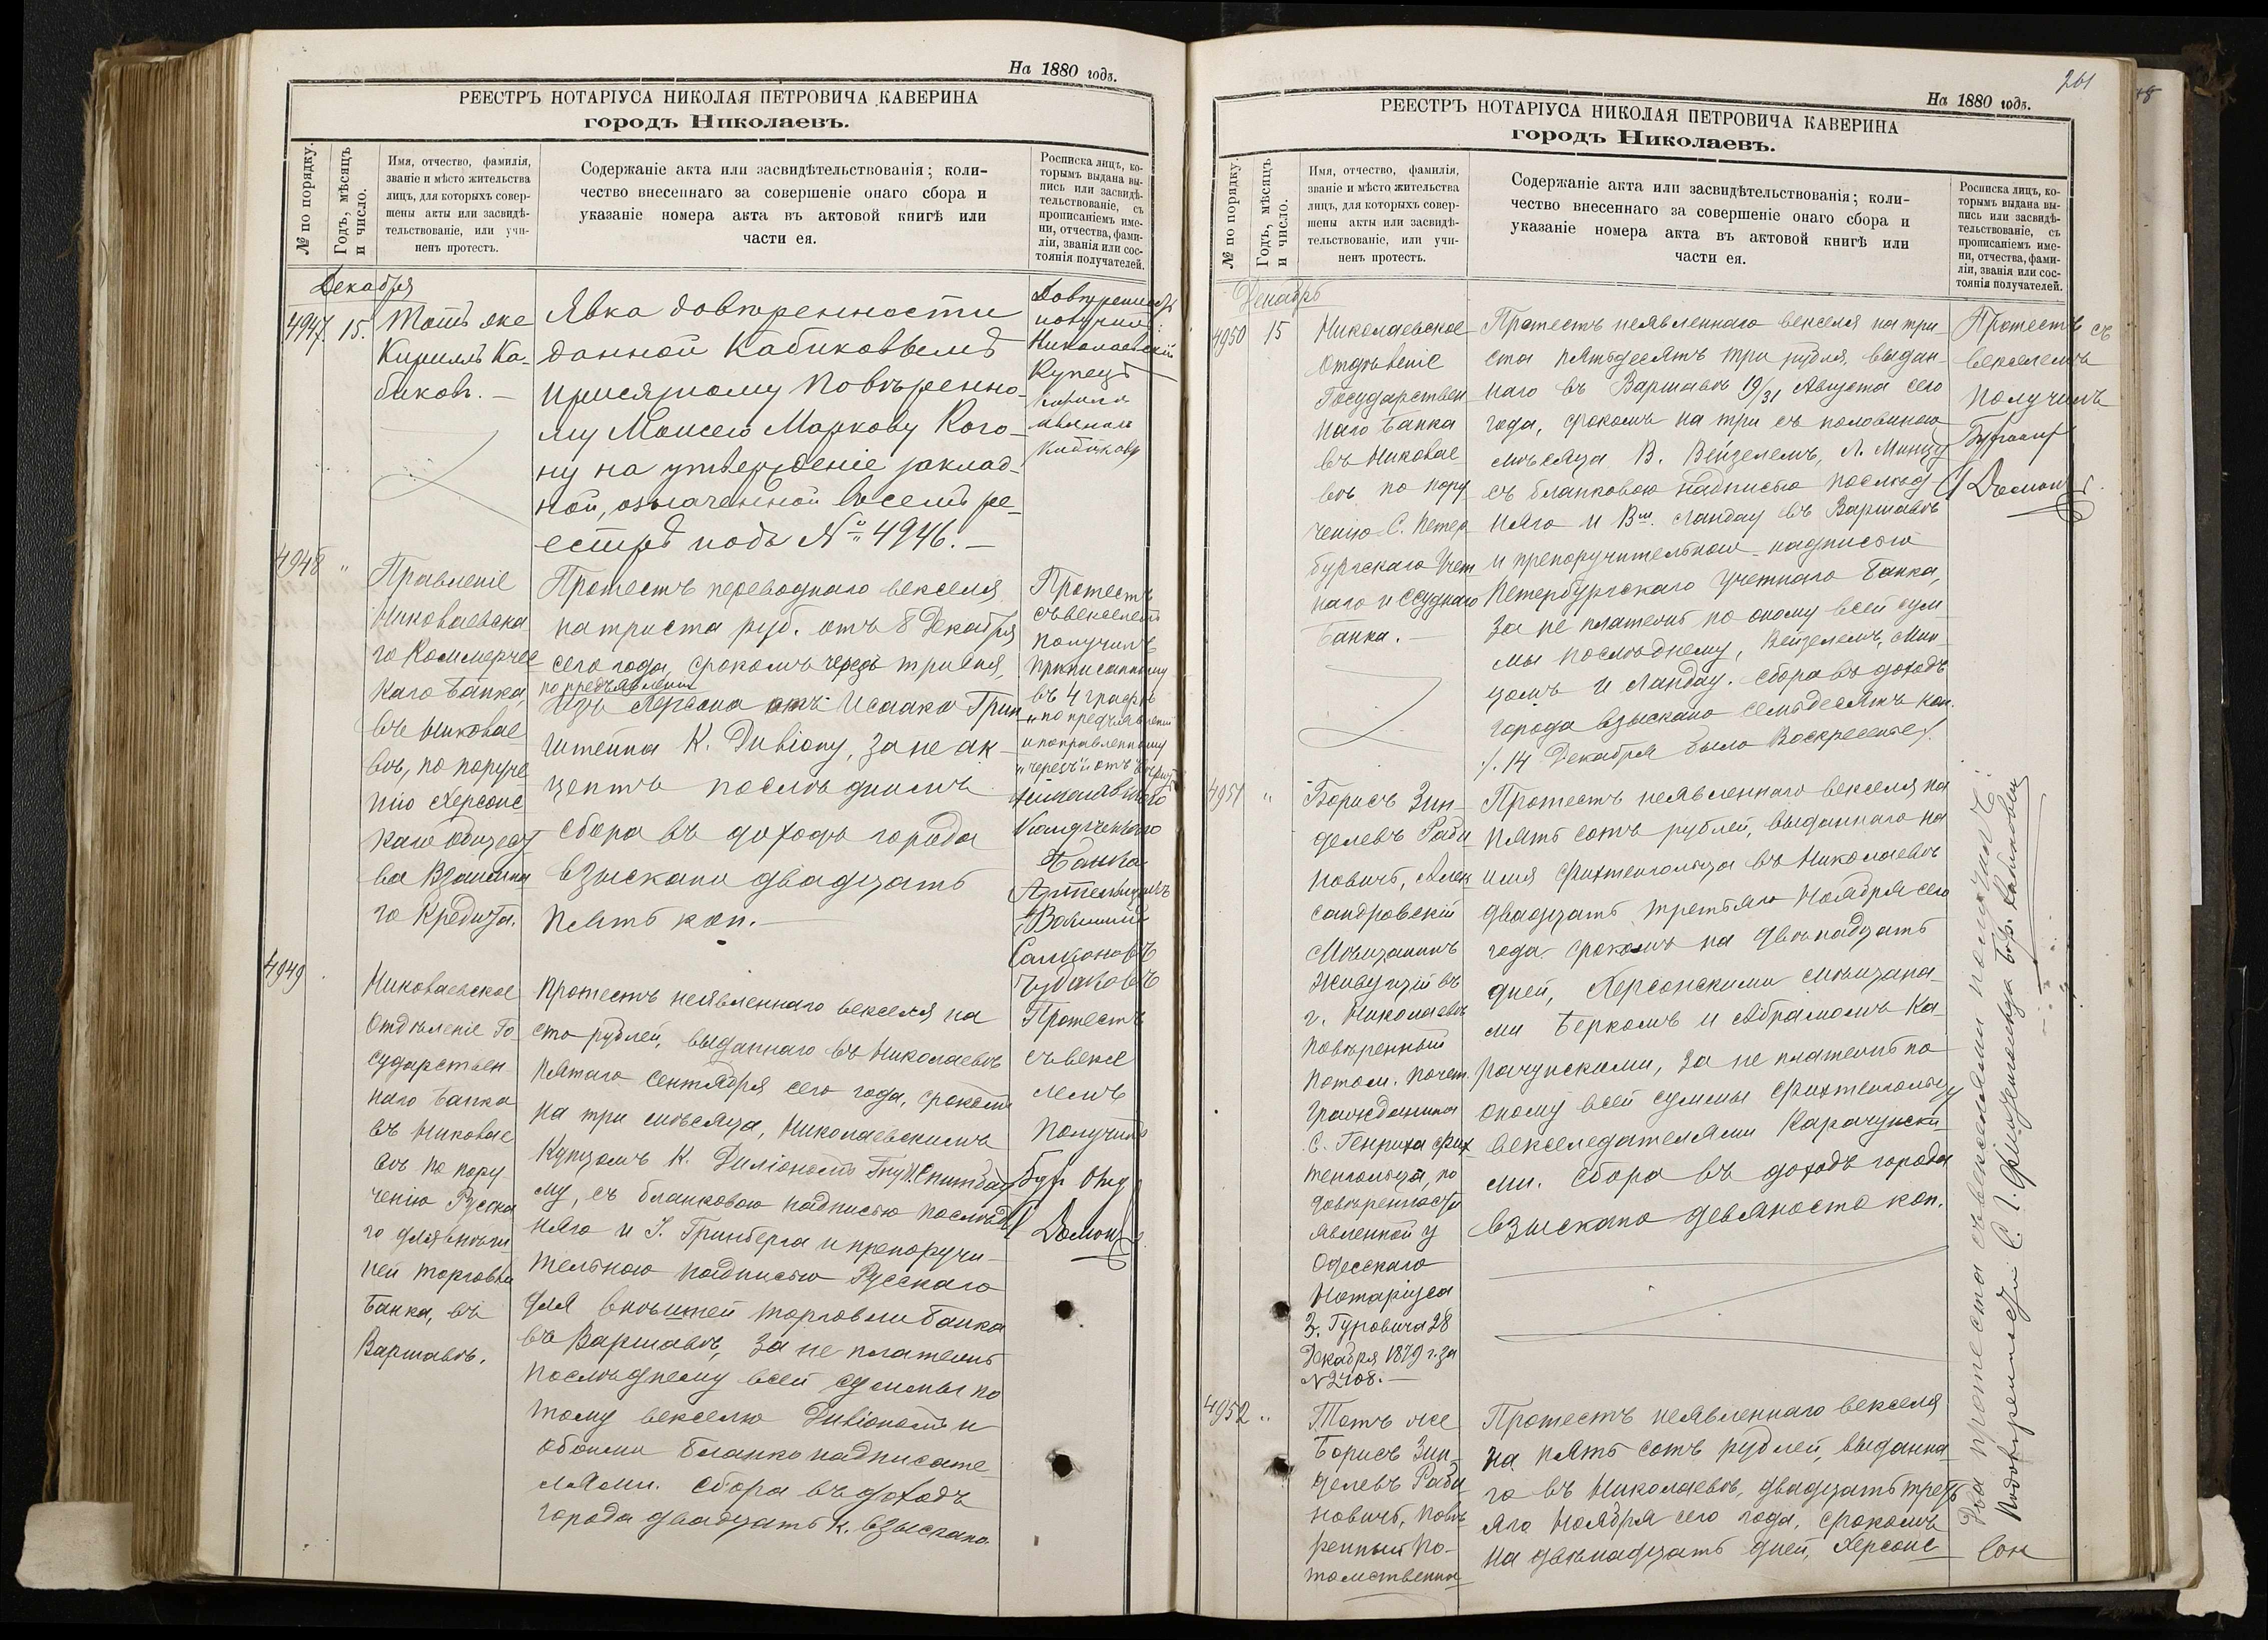 На 1880 годъ.
РЕЕСТРЪ НОТАРІУСА НИКОЛАЯ ПЕТРОВИЧА КАВЕРИНА
городъ Николаевъ.
№ по порядку.
Годъ, мѣсяцъ
и число.
Имя, отчество, фамилія,
званіе и мѣсто жительства
лицъ, для которыхъ совер-
шены акты или засвидѣ-
тельствованіе, или учи-
ненъ протестъ.
Содержаніе акта или засвидѣтельствованія; коли-
чество внесеннаго за совершеніе онаго сбора и
указаніе номера акта въ актовой книгѣ или
части ея.
Росписка лицъ, ко-
торымъ выдана вы-
пись или засвидѣ-
тельствованіе, съ
прописаніемъ име-
ни, отчества, фами-
ліи, званія или сос-
тоянія получателей.
Декабря
4947. 15.
Тотъ же
Кириллъ Ка-
биковъ. —
Явка довѣренности
данной Кабиковымъ
присяжному повѣренно-
му Моисею Маркову Кого-
ну на утвержденіе заклад-
ной, означенной въ семъ ре-
естрѣ подъ № 4946. —
Довѣренность
получилъ
Николаевскій
Купецъ
Кирилъ
Кабиковъ
4948 "
Правленіе
Николаевска
го Коммерчес
каго банка,
въ Николае
вѣ, по поруче
нію Херсонс
каго Общест
ва Взаимна
го Кредита.
Протестъ переводнаго векселя
на триста руб. отъ 8 Декабря
сего года, срокомъ черезъ три дня,
по предъявленіи
изъ Херсона отъ Исаака Грин
штейна К. Дивіону, за не ак-
цептъ послѣднимъ
сбора въ доходъ города
взыскано двадцать
пять коп. —
Протестъ
съ векселемъ
получилъ
приписанному
въ 4 графѣ
"по предъявленіи
и поправленному
"черезъ" и "отъ" вѣрить
Николаевского
Комерческаго
Банка
Артельщикъ
Василий
Самсоновъ
Чудаковъ
4949
Николаевское
Отдѣленіе Го
сударствен
наго банка
въ Николае
вѣ по пору
ченію Русска
го для внѣш
ней торговли
банка, въ
Варшавѣ.
Протестъ неявленнаго векселя на
сто рублей, выданнаго въ Николаевѣ
пятаго сентября сего года, срокомъ
на три мѣсяца, Николаевскимъ
Купцомъ К. Дивіономъ
му, съ бланковою надписью послѣд
няго и І. Гринберга и препоручи-
тельною надписью Русскаго
для внѣшней торговли банка
въ Варшавѣ, за не платежъ
послѣднему всей суммы по
тому векселю Дивіономъ и
обоими бланконадписате
лями. Сбора въ доходъ
города двадцать к. взыскано
Протестъ
съ вексе
лемъ
получилъ
261
На 1880 годъ.
РЕЕСТРЪ НОТАРІУСА НИКОЛАЯ ПЕТРОВИЧА КАВЕРИНА
городъ Николаевъ.
№ по порядку.
Годъ, мѣсяцъ
и число.
Имя, отчество, фамилія,
званіе и мѣсто жительства
лицъ, для которыхъ совер-
шены акты или засвидѣ-
тельствованіе, или учи-
ненъ протестъ.
Содержаніе акта или засвидѣтельствованія; коли-
чество внесеннаго за совершеніе онаго сбора и
указаніе номера акта въ актовой книгѣ или
части ея.
Росписка лицъ, ко-
торымъ выдана вы-
пись или засвидѣ-
тельствованіе, съ
прописаніемъ име-
ни, отчества, фами-
ліи, званія или сос-
тоянія получателей.
Декабрь
4950 15
Николаевское
Отдѣленіе
Государствен
наго банка
въ Николае
вѣ по пору
ченію С. Петер
бургскаго Учет
наго и Ссуднаго
банка. —
Протестъ неявленнаго векселя на три
ста пятьдесятъ три рубля, выдан-
наго въ Варшавѣ 19/31 Августа сего
года, срокомъ на три съ половиною
мѣсяца В. Вейзелемъ, Л. Минцу
съ бланковою надписью послѣд
няго и Вл. Ландау въ Варшавѣ
и препоручительною надписью
Петербургскаго Учетнаго банка,
за не платежъ по оному всей сум
мы послѣднему, Вейзелемъ, Мин
цомъ и Ландау. Сбора въ доходъ
города взыскано семьдесятъ коп.
/. 14 Декабря было Воскресенье/.
Протестъ съ
векселемъ
получилъ
4951 "
Борисъ Зин-
делевъ Раби
новичъ, Алек
сандровскій
Мѣщанинъ
живущій въ
г. Николаевѣ
повѣренный
потом. почет.
гражданина
С. Генриха Фих
тенгольца, по
довѣренности
явленной у
Одесскаго
Нотаріуса
З. Гуровича 28
Декабря 1879 г. за
№ 2408. —
Протестъ неявленнаго векселя на
пять сотъ рублей, выданнаго на
имя Фихтенгольца въ Николаевѣ
двадцать третьяго Ноября сего
года срокомъ на двѣнадцать
дней, Херсонскими мѣщана-
ми Беркомъ и Абрамомъ Ка
рачунскими, за не платежъ по
оному всей суммы Фихтенгольцу
векселедателями Карачунски-
ми. Сбора въ доходъ города
взыскано девяносто коп.
4952 "
Тотъ же
Борисъ Зин-
делевъ Раби
новичъ, повѣ
ренный по-
томственна
Протестъ неявленнаго векселя
на пять сотъ рублей, выданна
го въ Николаевѣ, двадцать треть
яго Ноября сего года, срокомъ
на двѣнадцать дней, Херсонс
Два протеста съ векселями получилъ